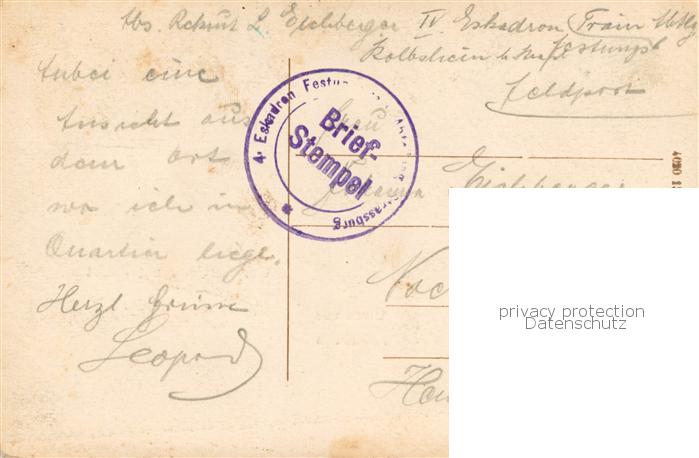 Abs. Rekrut L. Eichberger IV. Eskadron Train Abtlg
Kolbsheim b. Festungs
Feldpost
Anbei eine
Ansicht aus
dem Ort
wo ich in
Quartier liege.
Herzl Grüsse
Leopold
4. Eskadron Strassburg
Brief-
Stempel
Frau
Eichberger
privacy protection
Datenschutz